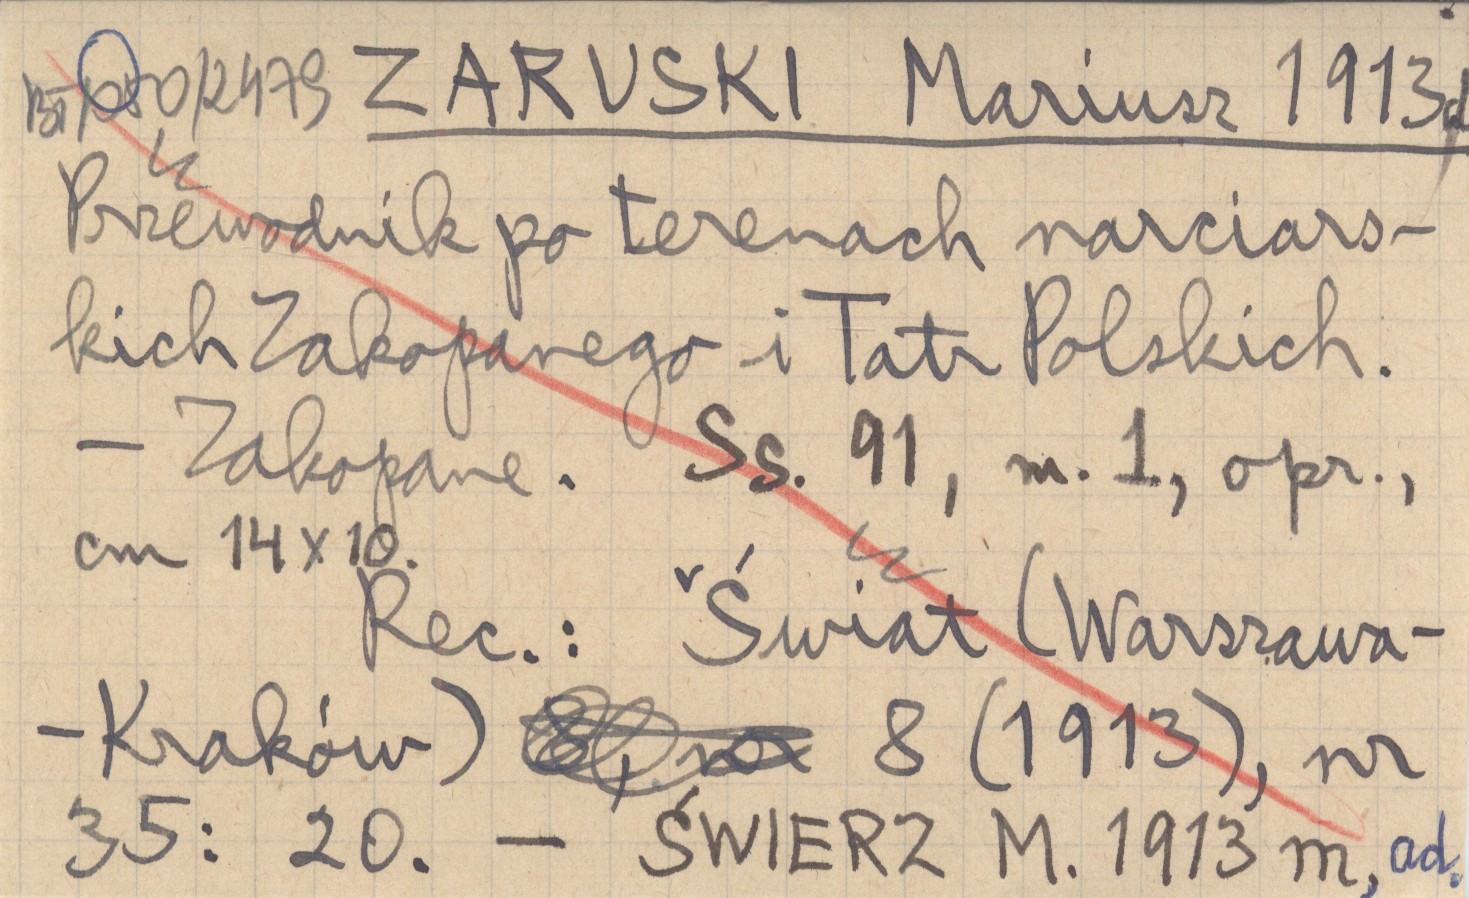 ZARUSKI Mariusz 1913d
Przewodnik po terenach narciars-
kich Zakopanego i Tatr Polskich.
— Zakopane. Ss. 91, m. 1, opr.,
cm 14x10.
Rec.: Świat (Warszawa-
-Kraków) 8 (1913), nr
35: 20. — ŚWIERZ M. 1913 m, ad.